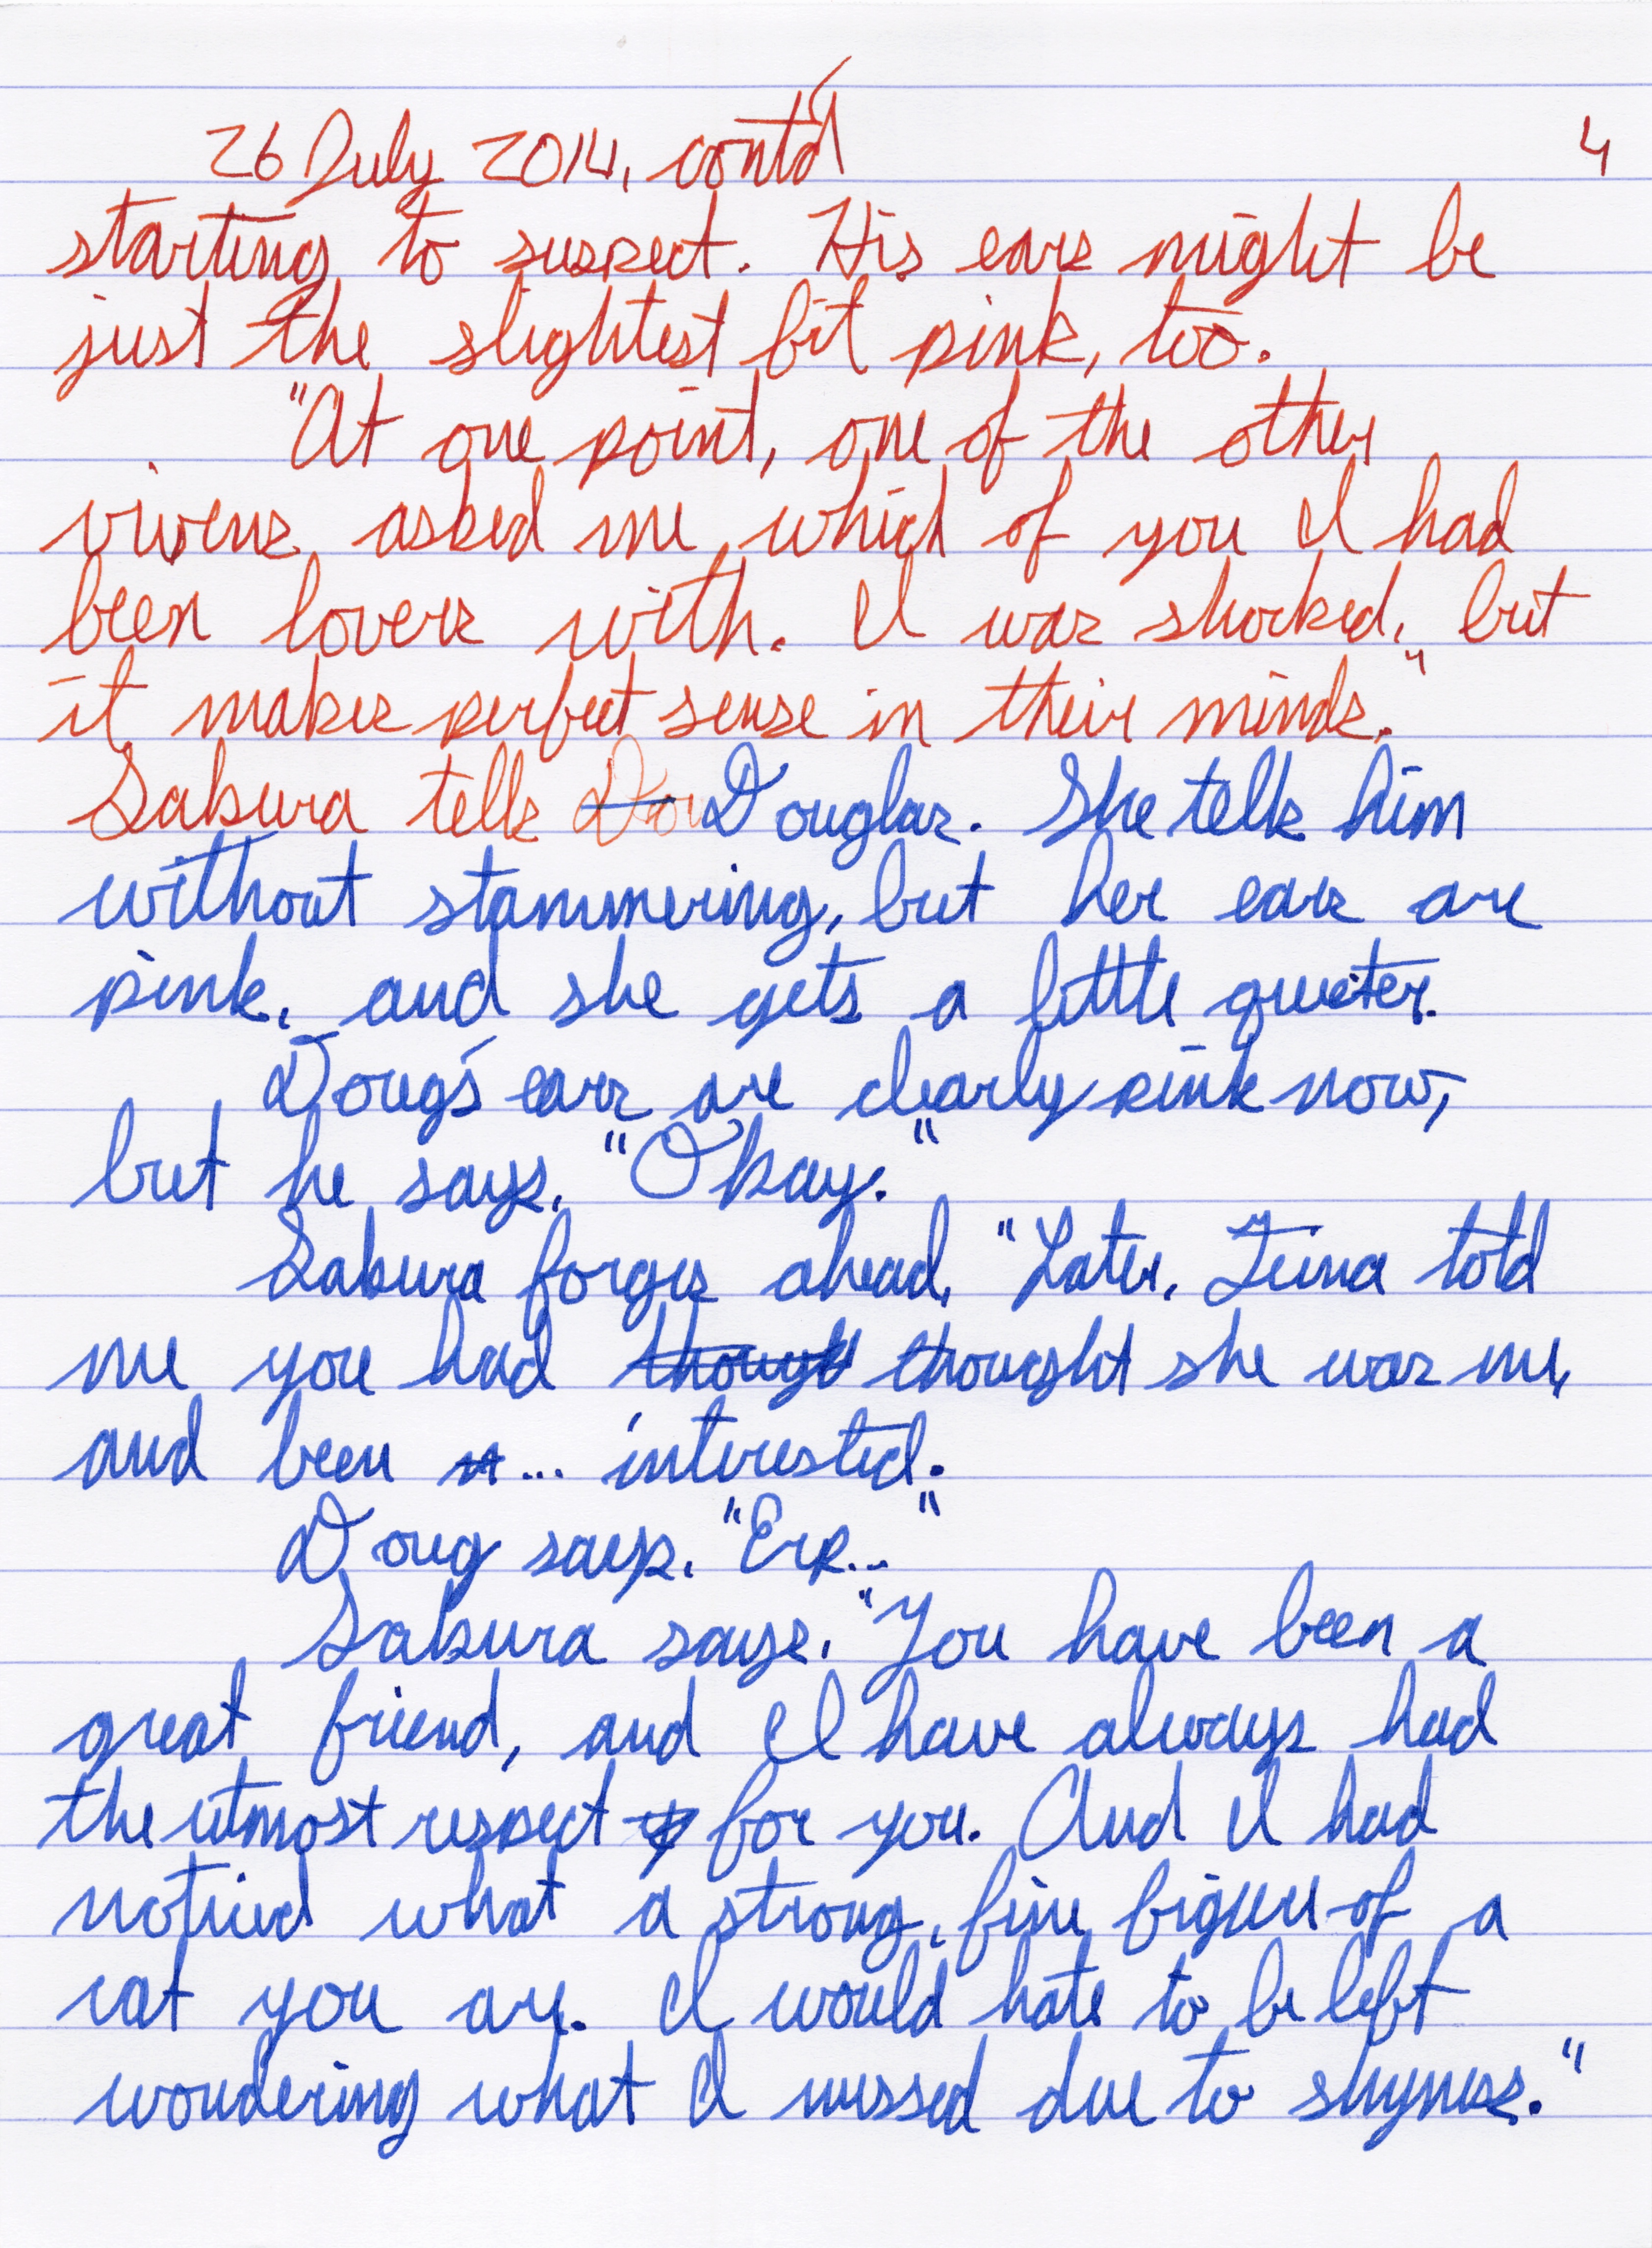 26 July 2014, cont'd 4
starting to suspect. His ears might be
just the slightest bit pink, too.
"At one point, one of the other
vivens asked me which of you I had
been lovers with. I was shocked, but
it makes perfect sense in their minds."
Sakura tells Dou Douglas. She tells him
without stammering, but her ears are
pink, and she gets a little quieter.
Doug's ears are clearly pink now,
but he says, "Okay."
Sakura forges ahead, "Later, Tiina told
me you had though thought she was me,
and been ... interested."
Doug says, "Erk..."
Sakura says, "You have been a
great friend, and I have always had
the utmost respect for you. And I had
noticed what a strong, fine figure of a
rat you are. I would hate to be left
wondering what I missed due to shyness."